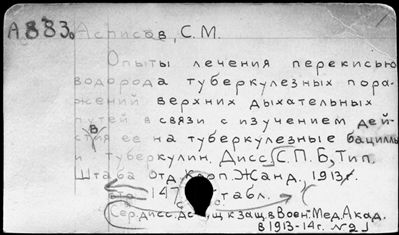 А883.
Асписов, С.М.
Опыты лечения перекисью
водорода туберкулезных пора-
жений верхних дыхательных
путей в связи с изучением дей-
ствия ее на туберкулезные бациллы
и туберкулин. Дисс. С.П.Б, Тип.
Штаба Отд. Корп. Жанд. 1913г.
147 табл.
Сер. дисс. допущ к защ в Воен. Мед. Акад.
в 1913-14г. №21